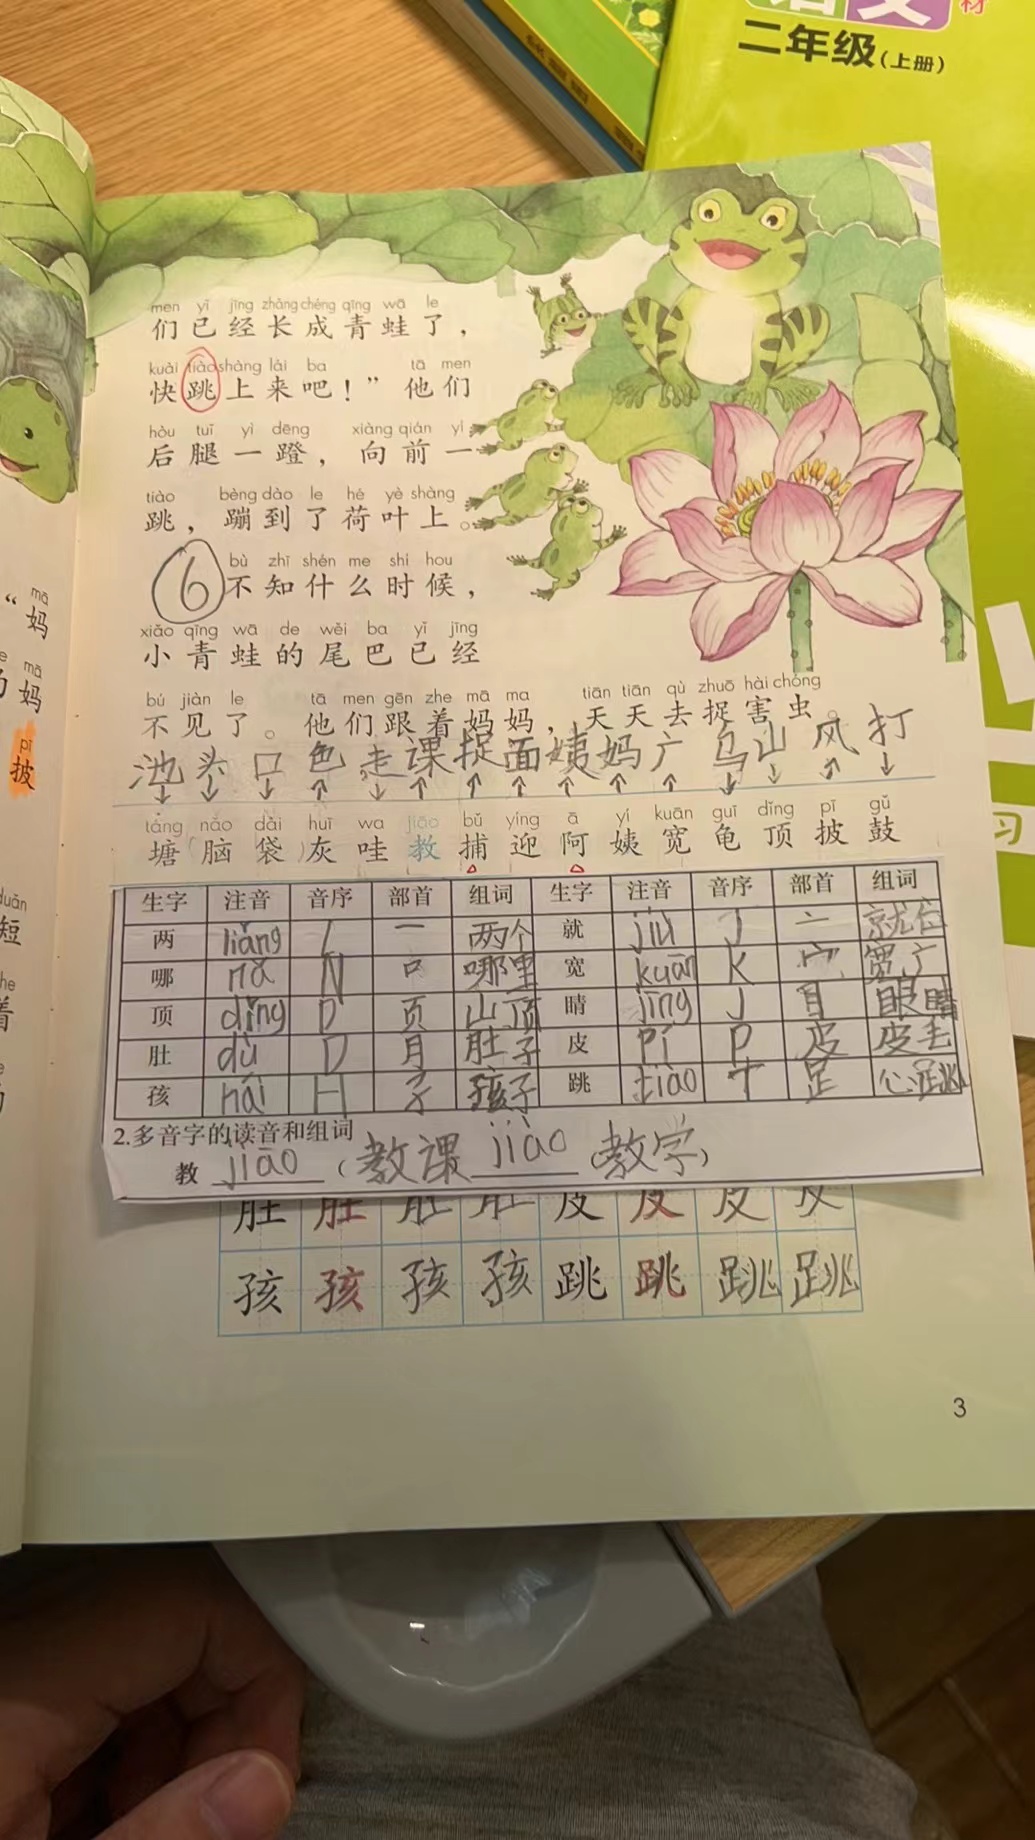 语文
材
二年级(上册)
men yǐ jīng zhǎng chéng qīng wā le
们已经长成青蛙了，
kuài tiào shàng lái ba tā men
快跳上来吧！”他们
hòu tuǐ yì dēng xiàng qián yí
后腿一蹬，向前一
tiào bèng dào le hé yè shàng
跳，蹦到了荷叶上。
bù zhī shén me shí hou
⑥不知什么时候，
xiǎo qīng wā de wěi ba yǐ jīng
小青蛙的尾巴已经
bú jiàn le tā men gēn zhe mā ma tiān tiān qù zhuō hài chóng
不见了。他们跟着妈妈，天天去捉害虫。
池 头 口 色 走 课 捉 面 姨 妈 广 乌 山 风 打
↓ ↓ ↓ ↑ ↓ ↑ ↑ ↑ ↑ ↑ ↑ ↓ ↓ ↑ ↓
táng nǎo dài huī wa jiāo bǔ yíng ā yí kuān guī dǐng pī gǔ
塘(脑袋)灰哇教捕迎阿姨宽龟顶披鼓
生字 注音 音序 部首 组词 生字 注音 音序 部首 组词
两 liǎng L 一 两个 就 jiù J 亠 就位
哪 nǎ N 口 哪里 宽 kuān K 宀 宽广
顶 dǐng D 页 山顶 睛 jīng J 目 眼睛
肚 dù D 月 肚子 皮 pí P 皮 皮毛
孩 hái H 子 孩子 跳 tiào T 足 心跳
2.多音字的读音和组词
教 jiāo (教课 jiào 教学)
肚 肚 肚 肚 皮 皮 皮 皮
孩 孩 孩 孩 跳 跳 跳 跳
3
mā
“妈
mā
妈
pī
披
duǎn
短
zhe
着
习